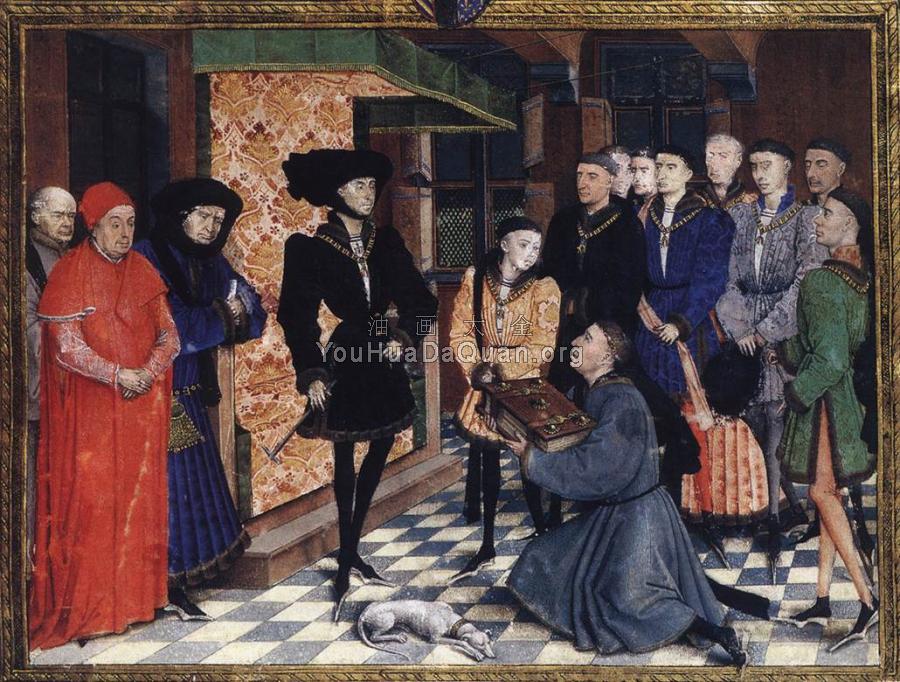 油画大全
YouHuaDaQuan.org